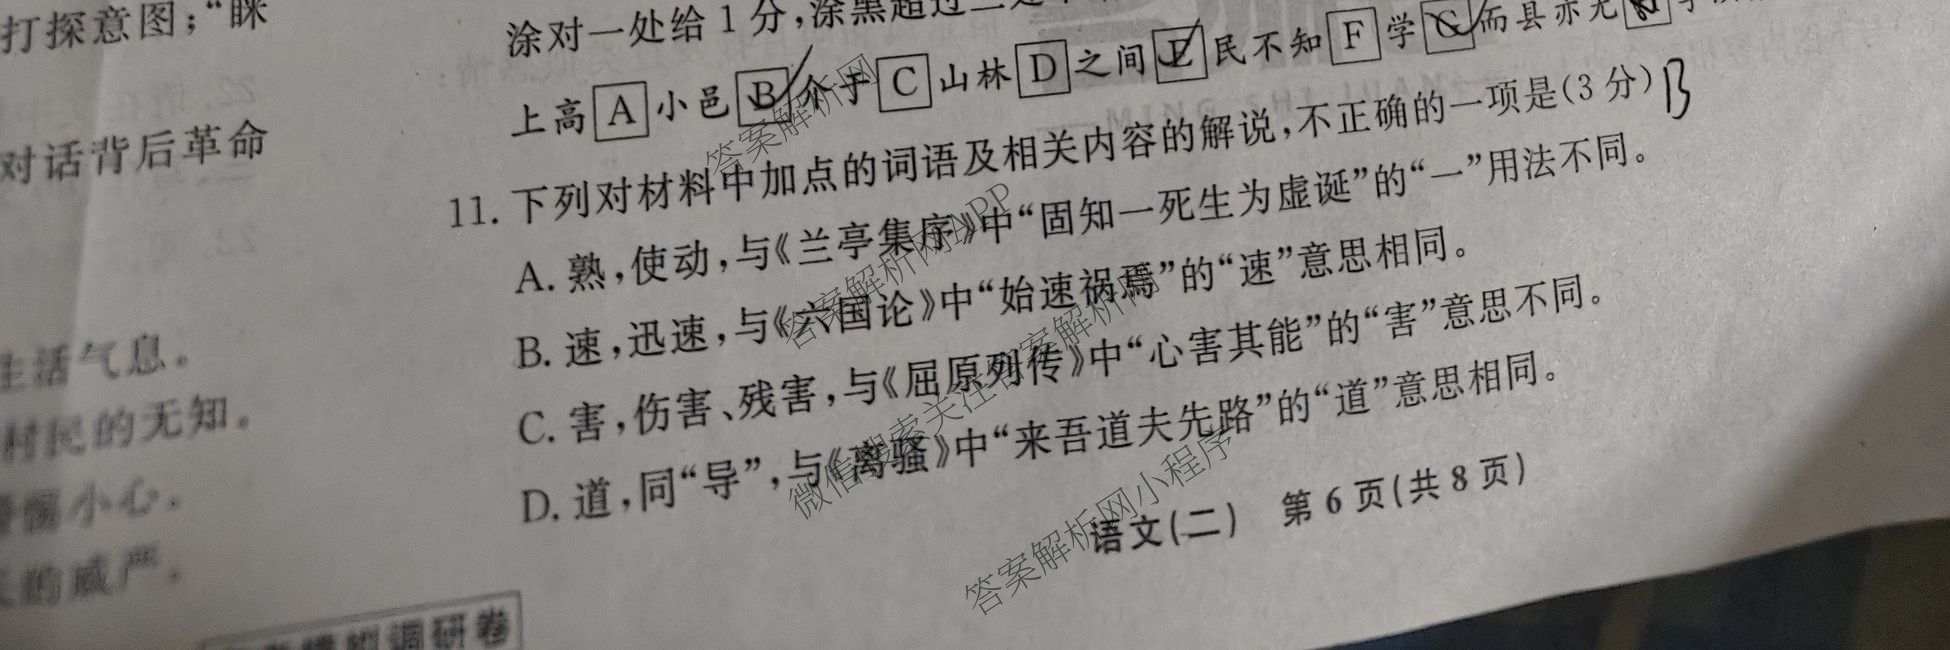 打探意图；“眯
对话背后革命
生活气息。
村民的无知。
小心。
的威严。
调研卷
涂对一处给1分，涂黑超过
上高 A 小邑 B 介于 C 山林 D 之间 E 民不知 F 学 G 而县亦无
11. 下列对材料中加点的词语及相关内容的解说，不正确的一项是（3分） B
A. 熟，使动，与《兰亭集序》中“固知一死生为虚诞”的“一”用法不同。
B. 速，迅速，与《六国论》中“始速祸焉”的“速”意思相同。
C. 害，伤害、残害，与《屈原列传》中“心害其能”的“害”意思不同。
D. 道，同“导”，与《离骚》中“来吾道夫先路”的“道”意思相同。
语文（二） 第6页（共8页）
答案解析网
答案解析网APP
微信搜索关注答案解析网
答案解析网小程序